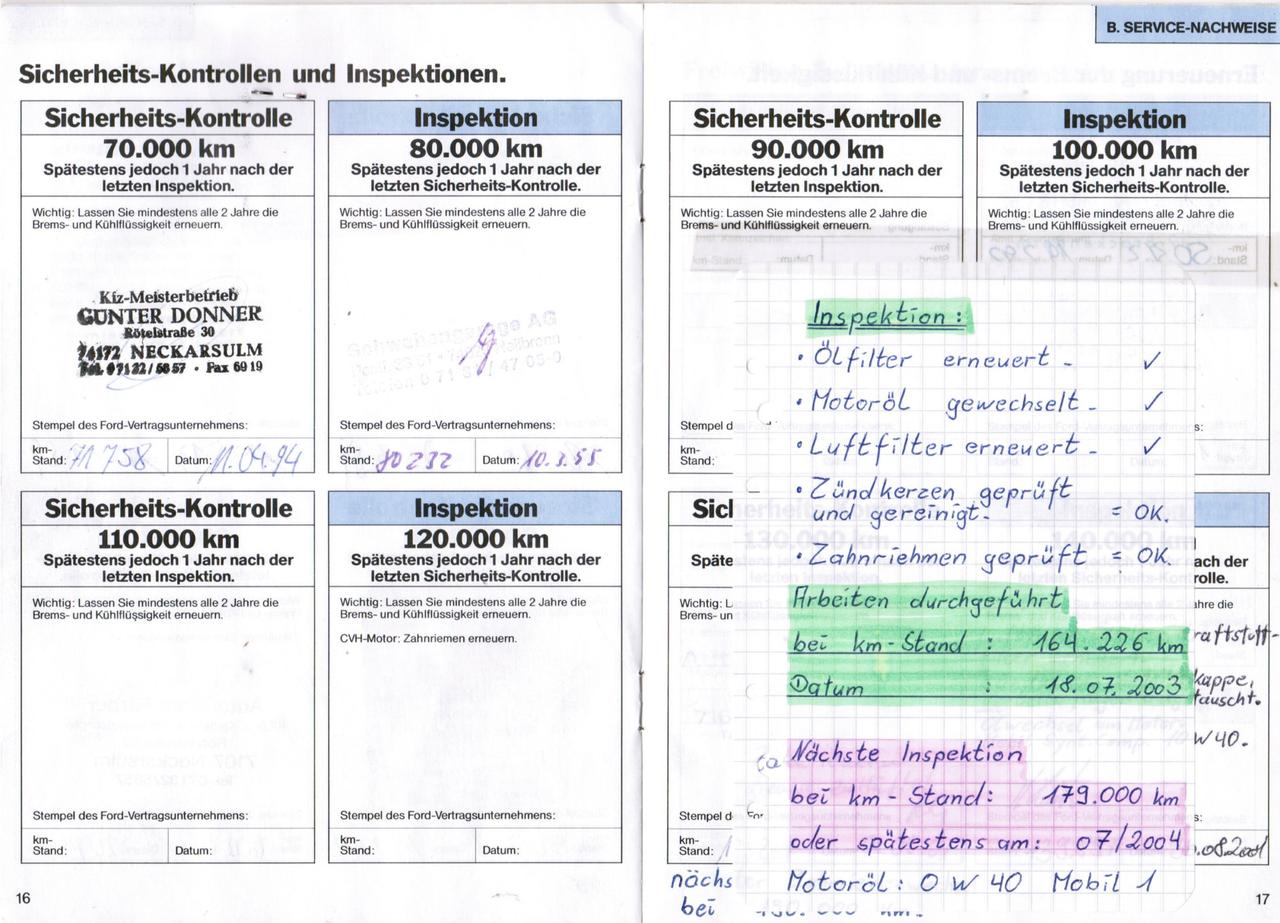 B. SERVICE-NACHWEISE
Sicherheits-Kontrollen und Inspektionen.
Sicherheits-Kontrolle
70.000 km
Spätestens jedoch 1 Jahr nach der
letzten Inspektion.
Wichtig: Lassen Sie mindestens alle 2 Jahre die
Brems- und Kühlflüssigkeit erneuern.
Kfz-Meisterbetrieb
GÜNTER DONNER
Rötelstraße 30
74172 NECKARSULM
Tel. 07132/5657 · Fax 6919
Stempel des Ford-Vertragsunternehmens:
km-
Stand: 71758 Datum: 11.04.94
Inspektion
80.000 km
Spätestens jedoch 1 Jahr nach der
letzten Sicherheits-Kontrolle.
Wichtig: Lassen Sie mindestens alle 2 Jahre die
Brems- und Kühlflüssigkeit erneuern.
AG
Stempel des Ford-Vertragsunternehmens:
km-
Stand: 80232 Datum: 10.3.95
Sicherheits-Kontrolle
110.000 km
Spätestens jedoch 1 Jahr nach der
letzten Inspektion.
Wichtig: Lassen Sie mindestens alle 2 Jahre die
Brems- und Kühlflüssigkeit erneuern.
Stempel des Ford-Vertragsunternehmens:
km-
Stand: Datum:
Inspektion
120.000 km
Spätestens jedoch 1 Jahr nach der
letzten Sicherheits-Kontrolle.
Wichtig: Lassen Sie mindestens alle 2 Jahre die
Brems- und Kühlflüssigkeit erneuern.
CVH-Motor: Zahnriemen erneuern.
Stempel des Ford-Vertragsunternehmens:
km-
Stand: Datum:
16
Sicherheits-Kontrolle
90.000 km
Spätestens jedoch 1 Jahr nach der
letzten Inspektion.
Wichtig: Lassen Sie mindestens alle 2 Jahre die
Brems- und Kühlflüssigkeit erneuern.
Stempel d
km-
Stand:
Inspektion
100.000 km
Spätestens jedoch 1 Jahr nach der
letzten Sicherheits-Kontrolle.
Wichtig: Lassen Sie mindestens alle 2 Jahre die
Brems- und Kühlflüssigkeit erneuern.
s:
Inspektion:
• Ölfilter erneuert - ✓
• Motoröl gewechselt - ✓
• Luftfilter erneuert - ✓
• Zündkerzen geprüft
und gereinigt. = OK.
• Zahnriehmen geprüft = OK.
Arbeiten durchgeführt
bei km-Stand : 164.226 km
Datum : 18.07.2003
Nächste Inspektion
bei km-Stand: 179.000 km
oder spätestens am: 07/2004
Motoröl: 0 W 40 Mobil 1
Sicherheits-Kontrolle
130.000 km
Späte
Wichtig: L
Brems- un
Stempel d
km-
Stand:
nach der
rolle.
ahre die
raftstoff-
kappe,
tauscht.
W40.
s:
.08.2001
nächs
bei
17